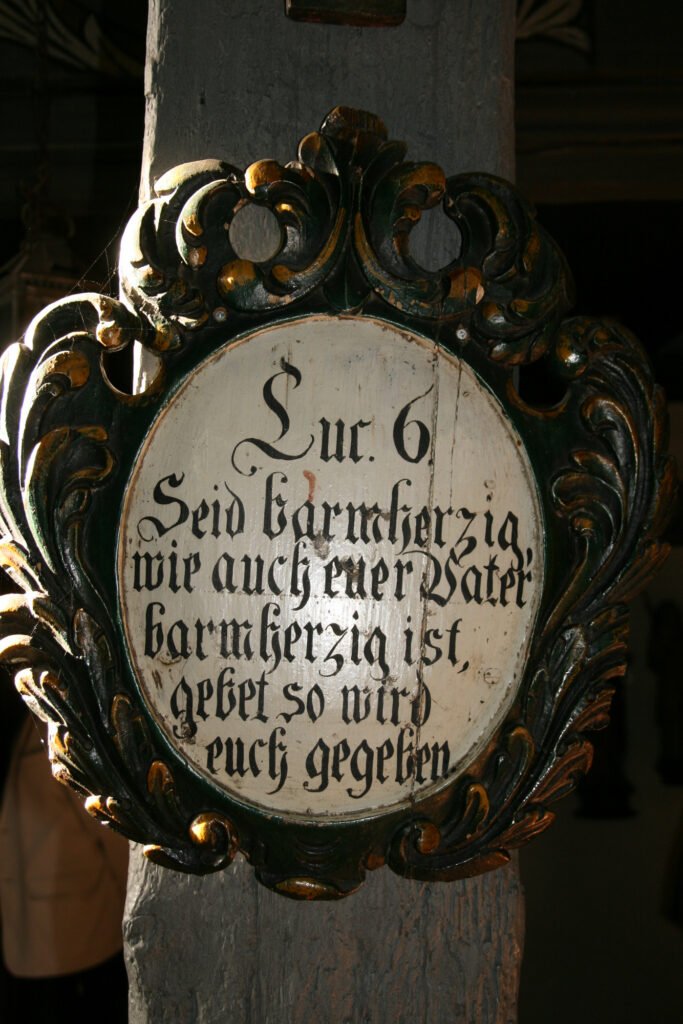 Luc. 6
Seid barmherzig,
wie auch euer Vater
barmherzig ist,
gebet so wird
euch gegeben